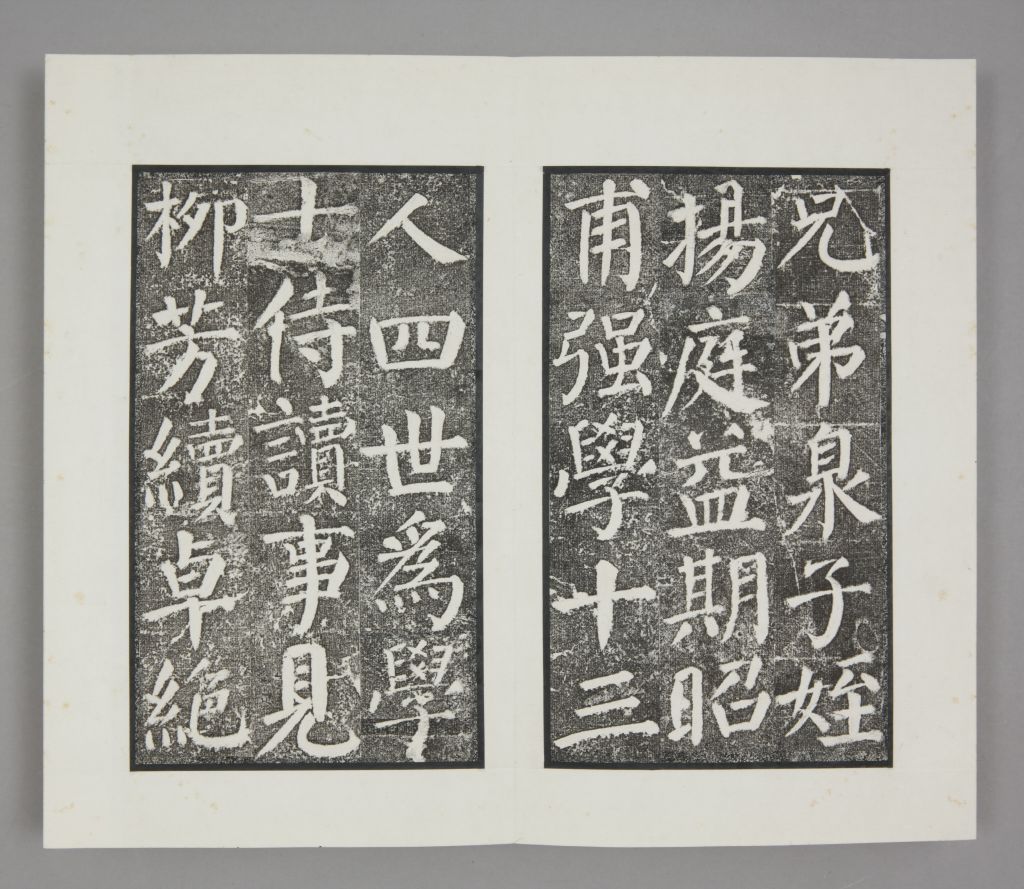 兄弟泉子姪
揚庭益期昭
甫强學十三
人四世爲學
士侍讀事見
柳芳續卓絕